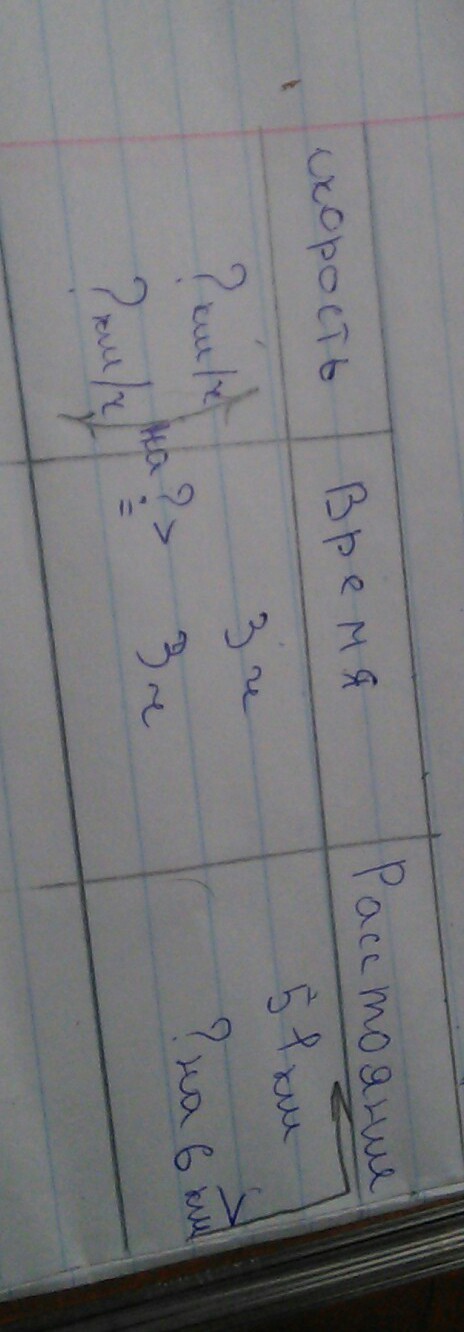 скорость Время Расстояние
? км/ч 3 ч 51 км
на ? >
? км/ч 3 ч ? на 6 км >